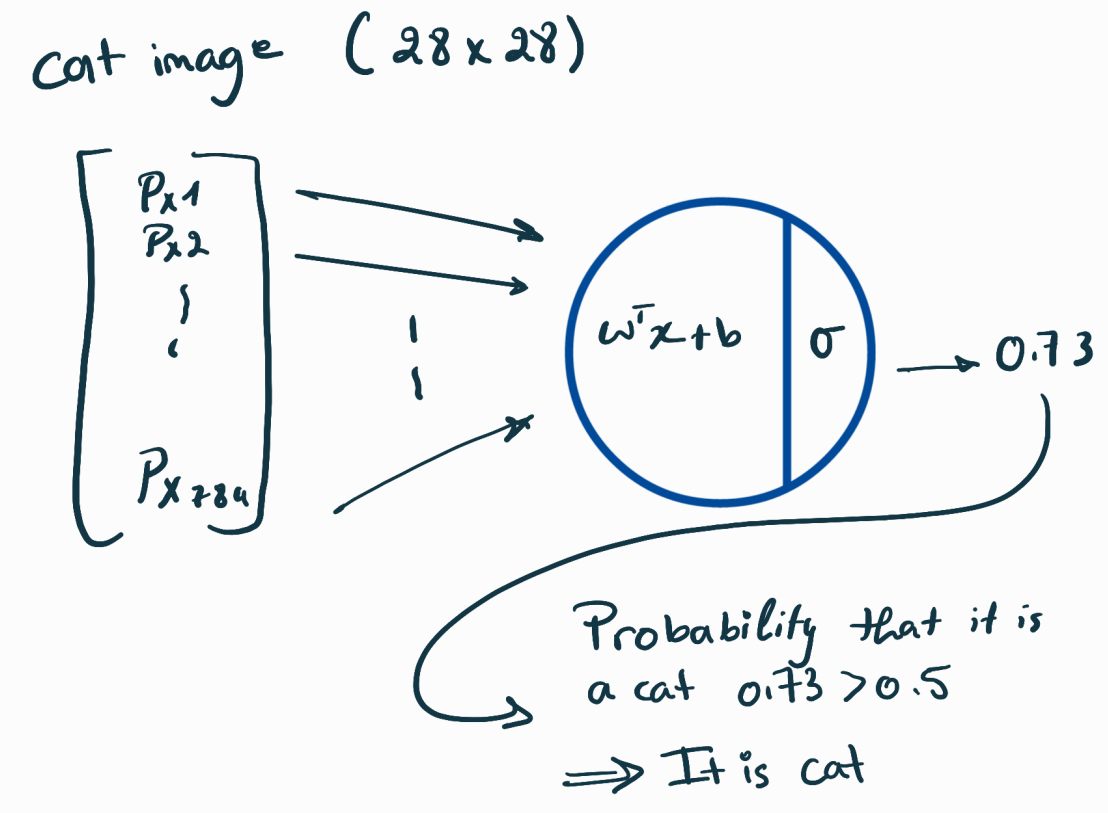 cat image (28 x 28)
Px1
Px2
Px784
wᵀx+b
σ
0.73
Probability that it is
a cat 0.73 > 0.5
⇒ It is cat